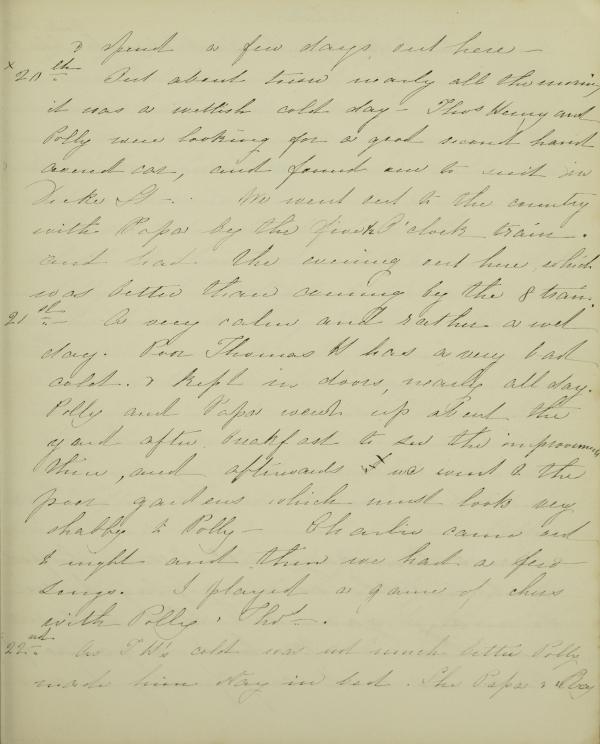 & spend a few days out here -
x20th Out about town nearly all the morning
it was a wettish cold day - Thos Henry and
Polly were looking for a good second hand
covered car, and found one to suit in
Duke St - . We went out to the country
with Papa by the five O'clock train.
and had the evening out here, which
was better than coming by the 8 train.
21st A very calm and rather a wet
day. Poor Thomas H has a very bad
cold. & kept in doors, nearly all day.
Polly and Papa went up about the
yard after breakfast to see the improvements
there, and afterwards we went to the
poor gardens which must look very
shabby to Polly - Charlie came out
to night and then we had a few
songs. I played a game of chess
with Polly & Thos -.
22nd As T H's cold was not much better Polly
made him stay in bed. She Papa &